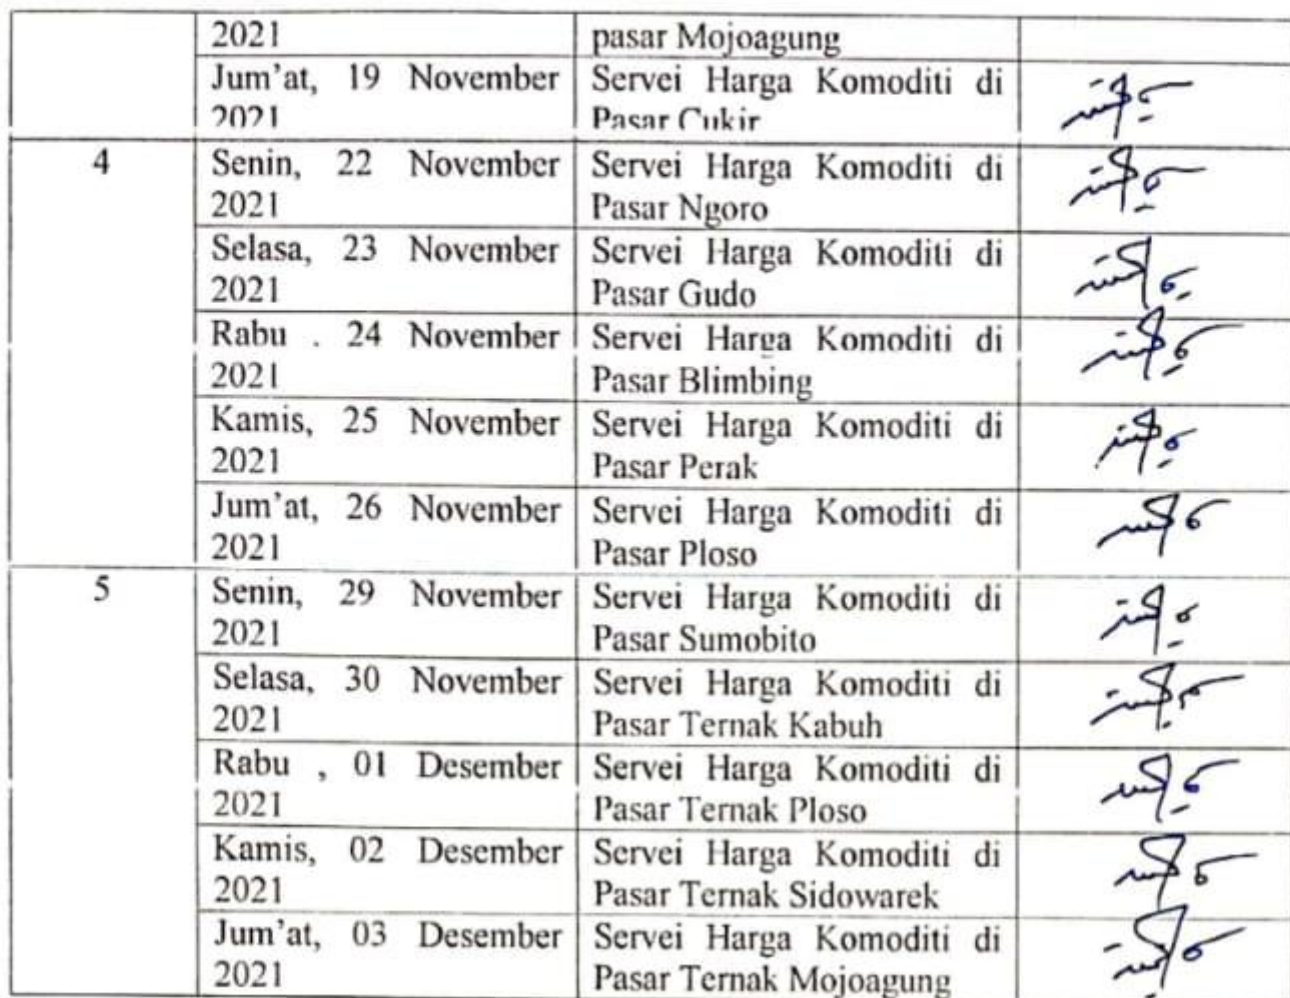 2021
pasar Mojoagung
Jum'at, 19 November
2021
Servei Harga Komoditi di
Pasar Cukir
4
Senin, 22 November
2021
Servei Harga Komoditi di
Pasar Ngoro
Selasa, 23 November
2021
Servei Harga Komoditi di
Pasar Gudo
Rabu . 24 November
2021
Servei Harga Komoditi di
Pasar Blimbing
Kamis, 25 November
2021
Servei Harga Komoditi di
Pasar Perak
Jum'at, 26 November
2021
Servei Harga Komoditi di
Pasar Ploso
5
Senin, 29 November
2021
Servei Harga Komoditi di
Pasar Sumobito
Selasa, 30 November
2021
Servei Harga Komoditi di
Pasar Ternak Kabuh
Rabu , 01 Desember
2021
Servei Harga Komoditi di
Pasar Ternak Ploso
Kamis, 02 Desember
2021
Servei Harga Komoditi di
Pasar Ternak Sidowarek
Jum'at, 03 Desember
2021
Servei Harga Komoditi di
Pasar Ternak Mojoagung